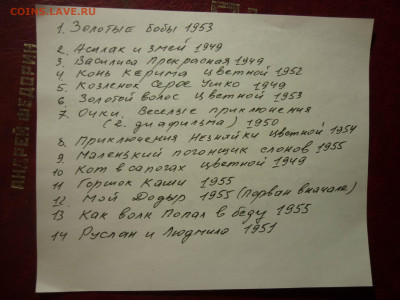 COINS.LAVE.RU
АНДРЕЙ ФЕДОРИН
1. Золотые бобы 1953
2. Асилак и змей 1949
3. Василиса Прекрасная 1949
4 Конь Керима цветной 1952
5. Козленок Серое Ушко 1949
6. Золотой волос цветной 1953
7. Очки. Веселые приключения
(2. диафильма) 1950
8. Приключения Незнайки цветной 1954
9 Маленький погонщик слонов 1955
10 Кот в сапогах цветной 1949
11 Горшок каши 1955
12. Мой Додыр 1955 (Порван вначале)
13 Как волк Попал в беду 1955
14 Руслан и Людмила 1951